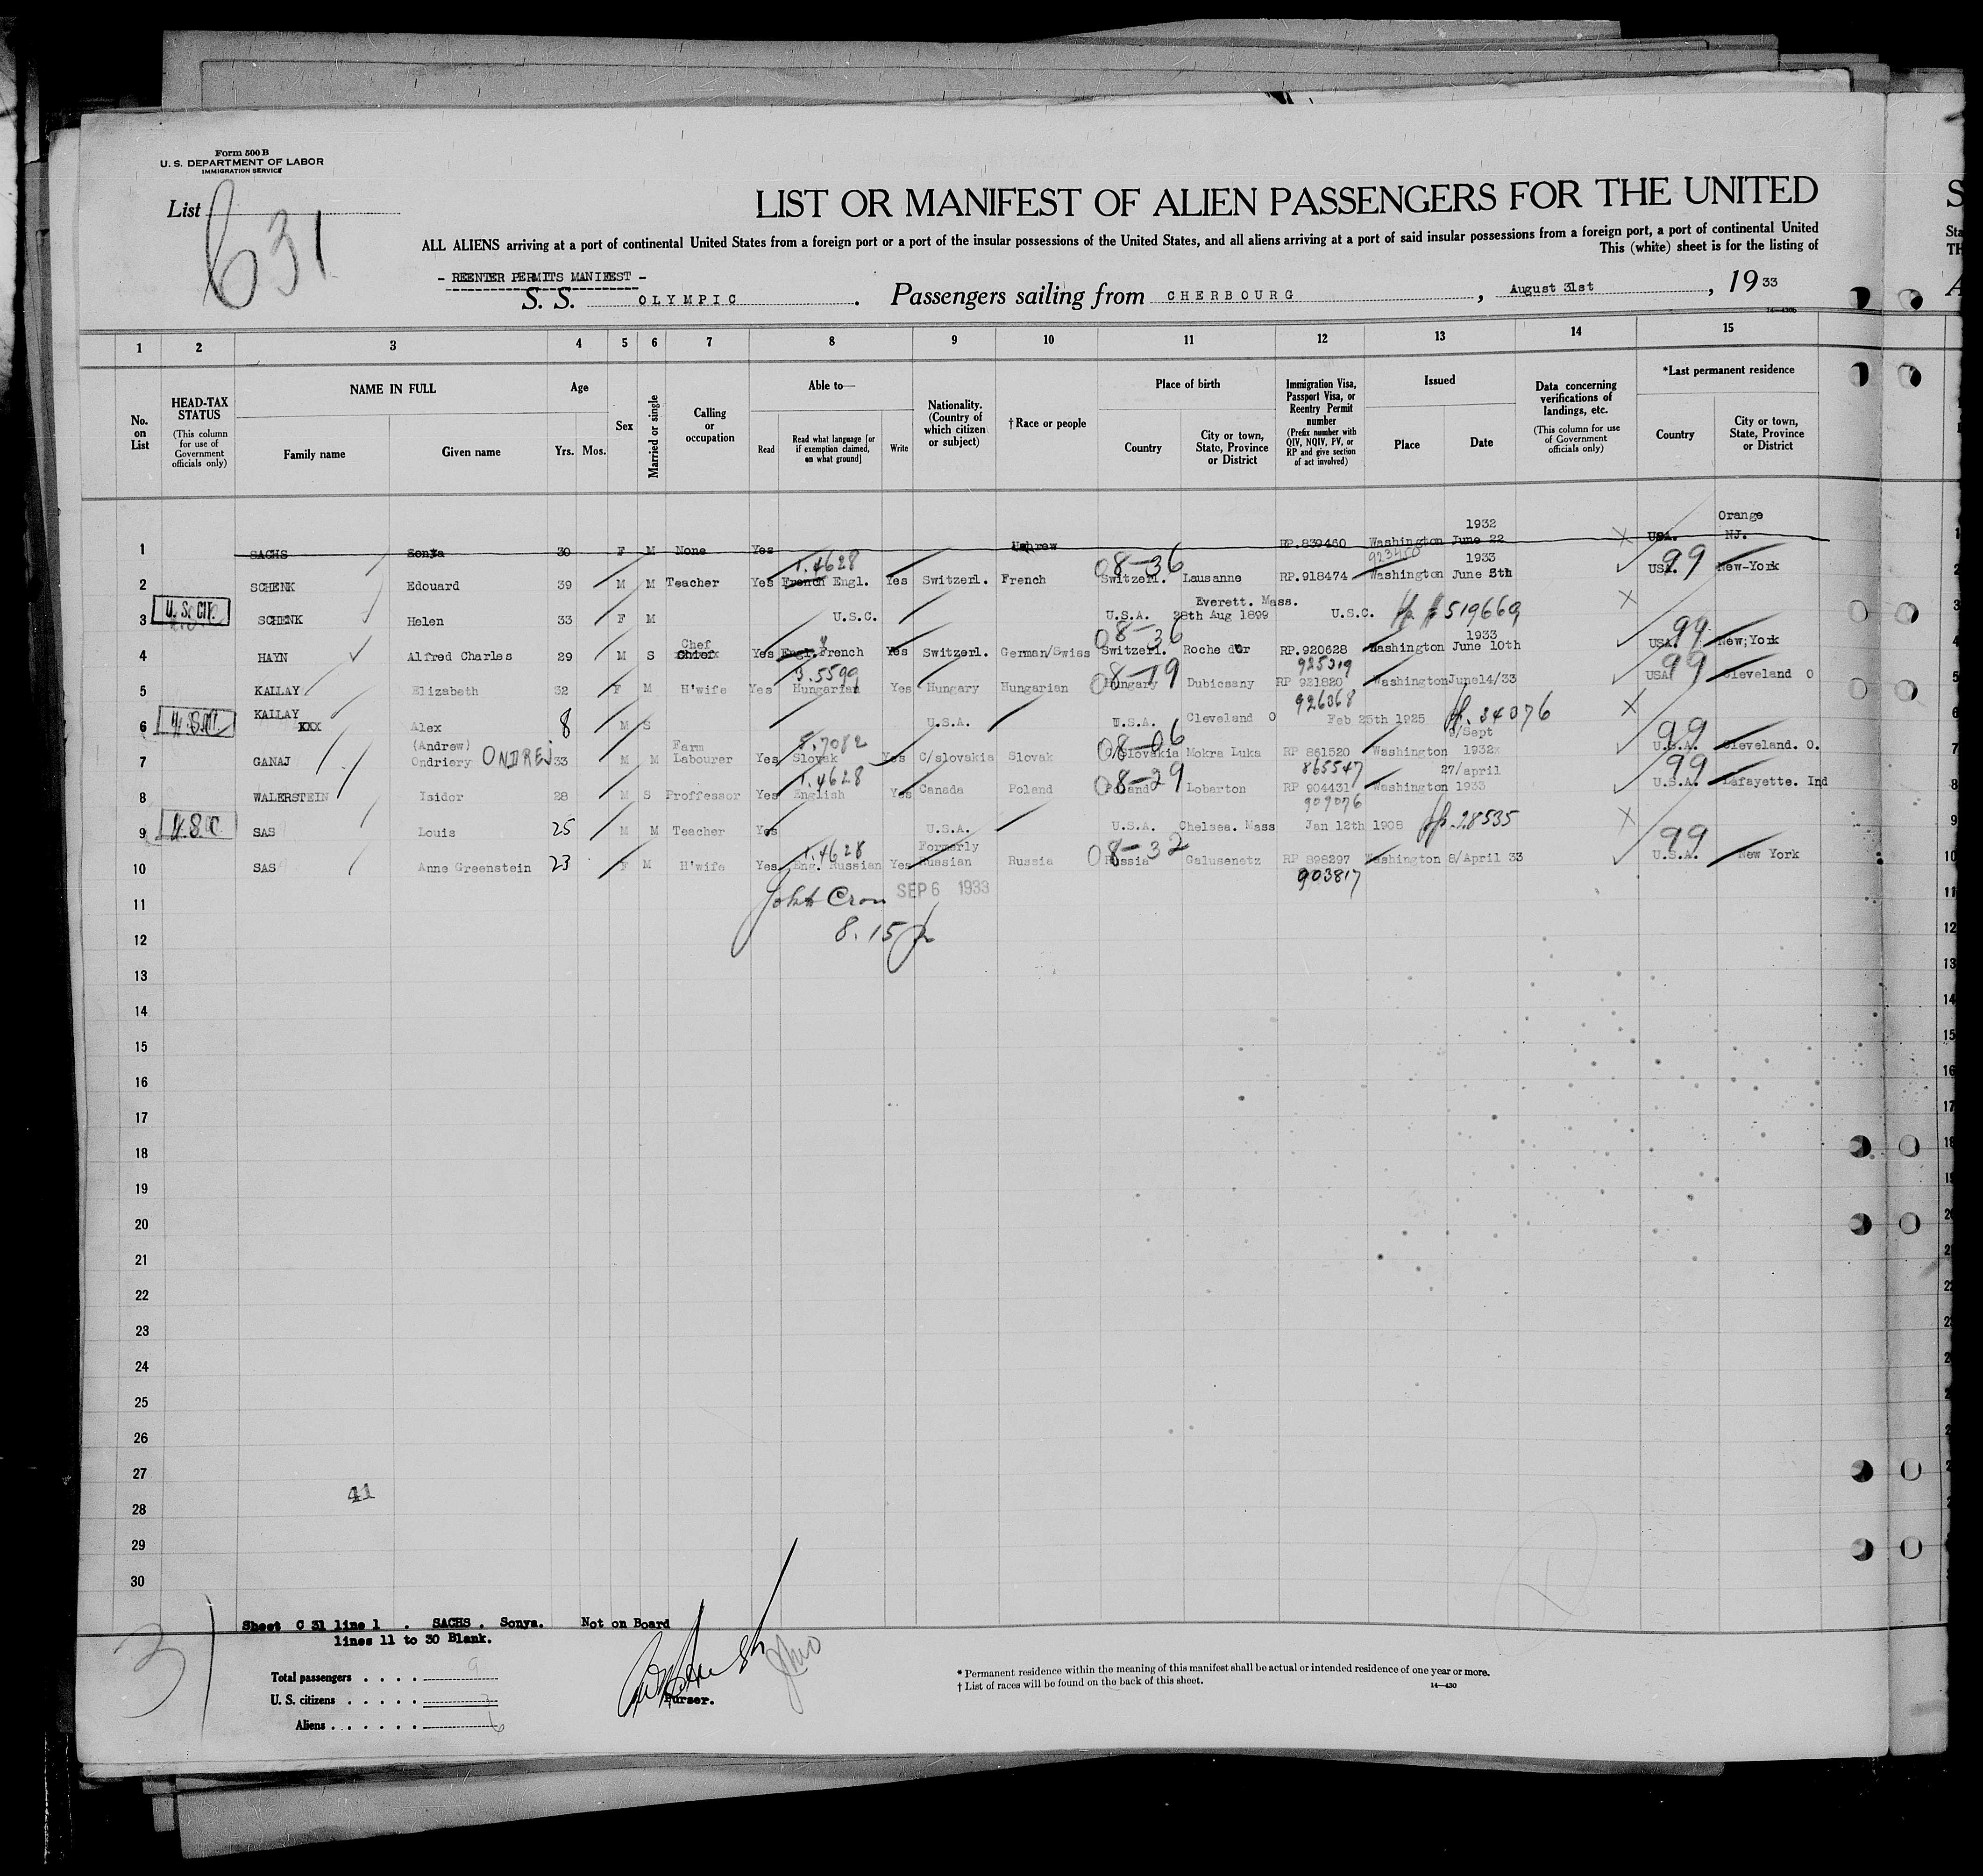 Form 500 B
U. S. DEPARTMENT OF LABOR
IMMIGRATION SERVICE
List C 31
LIST OR MANIFEST OF ALIEN PASSENGERS FOR THE UNITED
ALL ALIENS arriving at a port of continental United States from a foreign port or a port of the insular possessions of the United States, and all aliens arriving at a port of said insular possessions from a foreign port, a port of continental United
This (white) sheet is for the listing of
- REENTER PERMITS MANIFEST -
S. S. OLYMPIC . Passengers sailing from CHERBOURG , August 31st , 19 33
14—430b
1 2 3 4 5 6 7 8 9 10 11 12 13 14 15
No. on List
HEAD-TAX STATUS (This column for use of Government officials only)
NAME IN FULL Family name Given name
Age Yrs. Mos.
Sex
Married or single
Calling or occupation
Able to— Read Read what language [or if exemption claimed, on what ground] Write
Nationality. (Country of which citizen or subject)
† Race or people
Place of birth Country City or town, State, Province or District
Immigration Visa, Passport Visa, or Reentry Permit number (Prefix number with QIV, NQIV, PV, or RP and give section of act involved)
Issued Place Date
Data concerning verifications of landings, etc. (This column for use of Government officials only)
*Last permanent residence Country City or town, State, Province or District
1932 Orange
1 SACHS Sonya 30 F M None Yes Hebrew RP.839460 Washington June 22 USA. NJ.
1.4628 08-36 923450 1933 99
2 SCHENK Edouard 39 M M Teacher Yes French Engl. Yes Switzerl. French Switzerl. Lausanne RP.918474 Washington June 8th USA. New-York
U. S. CIT. Everett. Mass.
3 SCHENK Helen 33 F M U.S.C. U.S.A. 28th Aug 1899 U.S.C. # 519669
Chef 08-36 1933 99
4 HAYN Alfred Charles 29 M S Chief Yes Engl. French Yes Switzerl. German/Swiss Switzerl. Roche d'or RP.920628 Washington June 10th USA. New;York
3.5599 08-19 925319 99
5 KALLAY Elizabeth 32 F M H'wife Yes Hungarian Yes Hungary Hungarian Hungary Dubicsany RP 921820 Washington June14/33 USA Cleveland O
926368
KALLAY
6 XXX Alex 8 M S U.S.A. U.S.A. Cleveland O Feb 25th 1925 34076
(Andrew) Farm 5.7082 08-06 8/Sept 99
7 GANAJ Ondriery ONDREJ 33 M M Labourer Yes Slovak Yes C/slovakia Slovak C/Slovakia Mokra Luka RP 861520 Washington 1932 U.S.A. Cleveland. O.
1.4628 08-29 865547 27/april 99
8 WALERSTEIN Isidor 28 M S Proffessor Yes English Yes Canada Poland Poland Lobarton RP 904431 Washington 1933 U.S.A. Lafayette. Ind
909076
9 U.S.C. SAS Louis 25 M M Teacher Yes U.S.A. U.S.A. Chelsea. Mass Jan 12th 1908 28535
1.4628 Formerly 08-32 99
10 SAS Anne Greenstein 23 F M H'wife Yes Eng. Russian Yes Russian Russia Russia Galusenetz RP 898297 Washington 8/April 33 U.S.A. New York
903817
11 John Cron SEP 6 1933
12 8.15 p
13
14
15
16
17
18
19
20
21
22
23
24
25
26
27
28 41
29
30
Sheet C 31 line 1 . SACHS . Sonya. Not on Board
lines 11 to 30 Blank.
31
Total passengers . . . . 9
U. S. citizens . . . . . 3
Aliens . . . . . . 6
Purser.
* Permanent residence within the meaning of this manifest shall be actual or intended residence of one year or more.
† List of races will be found on the back of this sheet.
14—430